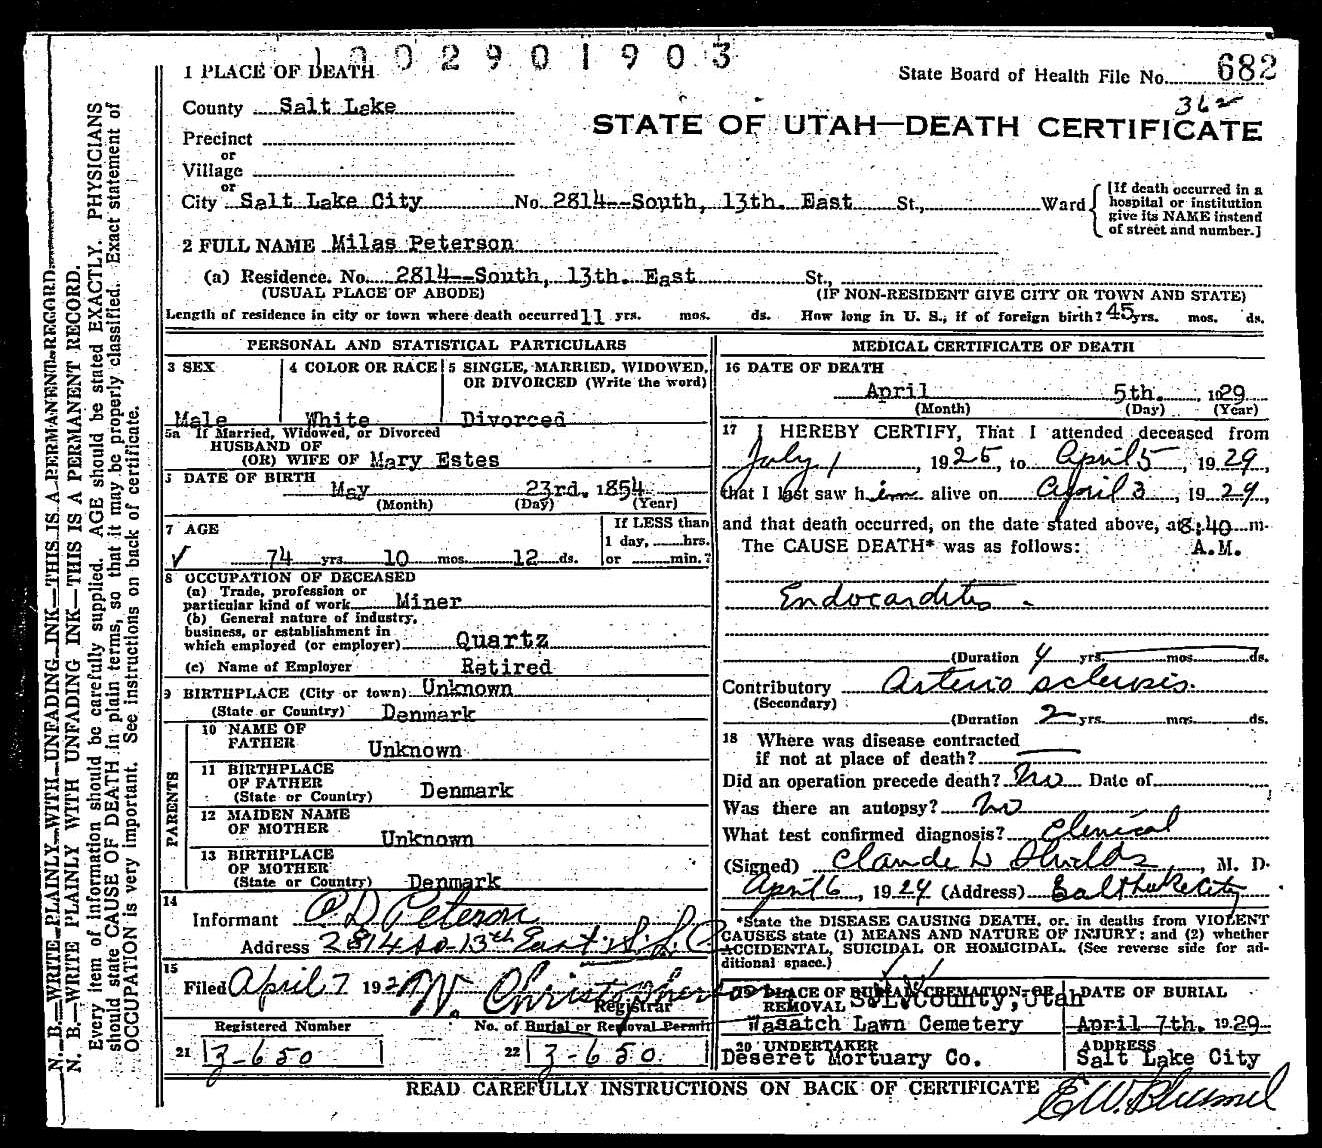 1002901903
1 PLACE OF DEATH
State Board of Health File No. 682
County Salt Lake
362
STATE OF UTAH—DEATH CERTIFICATE
Precinct
or
Village
or
City Salt Lake City No. 2814--South, 13th. East St., Ward
[If death occurred in a
hospital or institution
give its NAME instead
of street and number.]
2 FULL NAME Milas Peterson
(a) Residence. No. 2814--South, 13th. East St.,
(USUAL PLACE OF ABODE) (IF NON-RESIDENT GIVE CITY OR TOWN AND STATE)
Length of residence in city or town where death occurred 11 yrs. mos. ds. How long in U. S., if of foreign birth? 45 yrs. mos. ds.
PERSONAL AND STATISTICAL PARTICULARS
3 SEX
Male
4 COLOR OR RACE
White
5 SINGLE, MARRIED, WIDOWED,
OR DIVORCED (Write the word)
Divorced
5a If Married, Widowed, or Divorced
HUSBAND OF
(OR) WIFE OF Mary Estes
DATE OF BIRTH
May 23rd. 1854
(Month) (Day) (Year)
7 AGE
74 yrs. 10 mos. 12 ds.
If LESS than
1 day, hrs.
or min.?
8 OCCUPATION OF DECEASED
(a) Trade, profession or
particular kind of work Miner
(b) General nature of industry,
business, or establishment in
which employed (or employer) Quartz
(c) Name of Employer Retired
9 BIRTHPLACE (City or town) Unknown
(State or Country) Denmark
PARENTS
10 NAME OF
FATHER Unknown
11 BIRTHPLACE
OF FATHER
(State or Country) Denmark
12 MAIDEN NAME
OF MOTHER
Unknown
13 BIRTHPLACE
OF MOTHER
(State or Country) Denmark
14
Informant C D Peterson
Address 2814 So. 13th East. S. L. C
15
Filed April 7 192 W. Christopherson
Registrar
Registered Number
21 3-650
No. of Burial or Removal Permit
22 3-650
MEDICAL CERTIFICATE OF DEATH
16 DATE OF DEATH
April 5th. 1929
(Month) (Day) (Year)
17 I HEREBY CERTIFY, That I attended deceased from
July 1, 1925, to April 5, 1929,
that I last saw him alive on April 3, 1929,
and that death occurred, on the date stated above, at 8:40 m.
The CAUSE DEATH* was as follows: A.M.
Endocarditis
(Duration 4 yrs. mos. ds.
Contributory Arterio sclerosis.
(Secondary)
(Duration 2 yrs. mos. ds.
18 Where was disease contracted
if not at place of death?
Did an operation precede death? No Date of
Was there an autopsy? No
What test confirmed diagnosis? Clinical
(Signed) Claude L Shields, M. D.
April 6, 1929 (Address) Salt Lake City
*State the DISEASE CAUSING DEATH, or, in deaths from VIOLENT
CAUSES state (1) MEANS AND NATURE OF INJURY; and (2) whether
ACCIDENTAL, SUICIDAL OR HOMICIDAL. (See reverse side for ad-
ditional space.)
PLACE OF BURIAL, CREMATION OR
REMOVAL S.L. County, Utah
Wasatch Lawn Cemetery
DATE OF BURIAL
April 7th. 1929
20 UNDERTAKER
Deseret Mortuary Co.
ADDRESS
Salt Lake City
READ CAREFULLY INSTRUCTIONS ON BACK OF CERTIFICATE
N. B.—WRITE PLAINLY WITH UNFADING INK—THIS IS A PERMANENT RECORD.
N. B.—WRITE PLAINLY WITH UNFADING INK—THIS IS A PERMANENT RECORD.
Every item of information should be carefully supplied. AGE should be stated EXACTLY. PHYSICIANS
should state CAUSE OF DEATH in plain terms, so that it may be properly classified. Exact statement of
OCCUPATION is very important. See instructions on back of certificate.